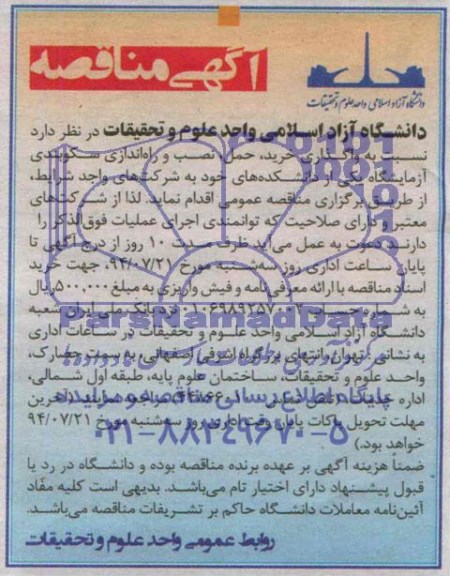 آگهی مناقصه
دانشگاه آزاد اسلامی واحد علوم و تحقیقات
دانشگاه آزاد اسلامی واحد علوم و تحقیقات در نظر دارد
نسبت به واگذاری خرید، حمل، نصب و راه‌اندازی سکوبندی
آزمایشگاه یکی از دانشکده‌های خود به شرکت‌های واجد شرایط،
از طریق برگزاری مناقصه عمومی اقدام نماید. لذا از شرکت‌های
معتبر و دارای صلاحیت که توانمندی اجرای عملیات فوق‌الذکر را
دارند دعوت به عمل می‌آید ظرف مدت ۱۰ روز از درج آگهی تا
پایان ساعت اداری روز سه‌شنبه مورخ ۹۴/۰۷/۲۱، جهت خرید
اسناد مناقصه با ارائه معرفی‌نامه و فیش واریزی به مبلغ ۵۰۰,۰۰۰ ریال
به شماره حساب نزد بانک ملی ایران شعبه
دانشگاه آزاد اسلامی واحد علوم و تحقیقات در ساعات اداری
به نشانی: تهران، انتهای بزرگراه اشرفی اصفهانی، به سمت حصارک،
واحد علوم و تحقیقات، ساختمان علوم پایه، طبقه اول شمالی،
اداره مراجعه نمایند. (آخرین
مهلت تحویل پاکات پایان وقت اداری روز سه‌شنبه مورخ ۹۴/۰۷/۲۱
خواهد بود.)
ضمناً هزینه آگهی بر عهده برنده مناقصه بوده و دانشگاه در رد یا
قبول پیشنهاد دارای اختیار تام می‌باشد. بدیهی است کلیه مفاد
آئین‌نامه معاملات دانشگاه حاکم بر تشریفات مناقصه می‌باشد.
روابط عمومی واحد علوم و تحقیقات
ParsNamadData
پایگاه اطلاع رسانی مناقصه و مزایده
۰۲۱-۸۸۳۴۹۶۷۰-۵